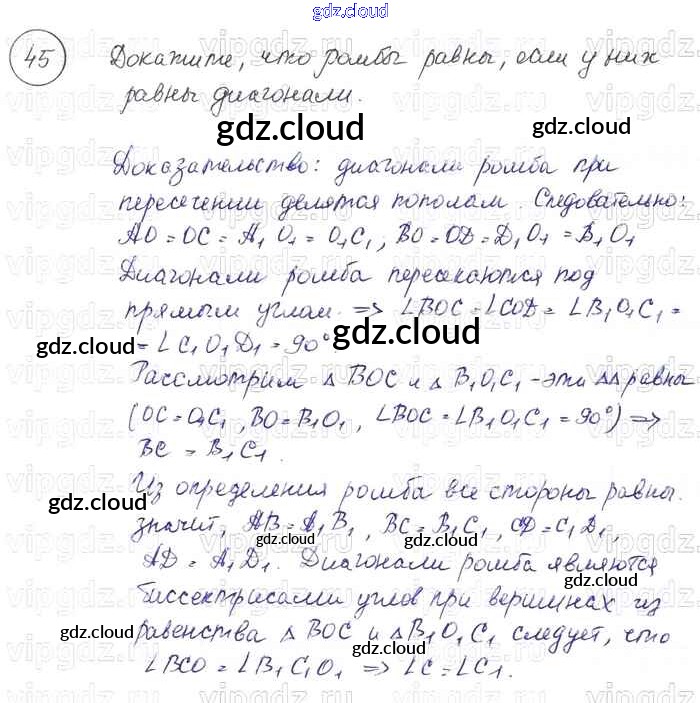 gdz.cloud
45 Докажите, что ромбы равны, если у них
равны диагонали.
gdz.cloud
Доказательство: диагонали ромба при
пересечении делятся пополам. Следовательно:
AO = OC = A₁O₁ = O₁C₁; BO = OD = D₁O₁ = B₁O₁
Диагонали ромба пересекаются под
прямым углом. => ∠BOC = ∠COD = ∠B₁O₁C₁ =
= ∠C₁O₁D₁ = 90°
gdz.cloud
gdz.cloud
Рассмотрим △ BOC и △ B₁O₁C₁ - эти △△ равны
(OC = O₁C₁, BO = B₁O₁, ∠BOC = ∠B₁O₁C₁ = 90°) =>
BC = B₁C₁.
gdz.cloud
Из определения ромба все стороны равны.
gdz.cloud
значит, AB = A₁B₁, BC = B₁C₁, CD = C₁D₁,
gdz.cloud
AD = A₁D₁. Диагонали ромба являются
gdz.cloud
биссектрисами углов при вершинах из
gdz.cloud
равенства △ BOC и △B₁O₁C₁ следует, что
∠BCO = ∠B₁C₁O₁ => ∠C = ∠C₁.
gdz.cloud